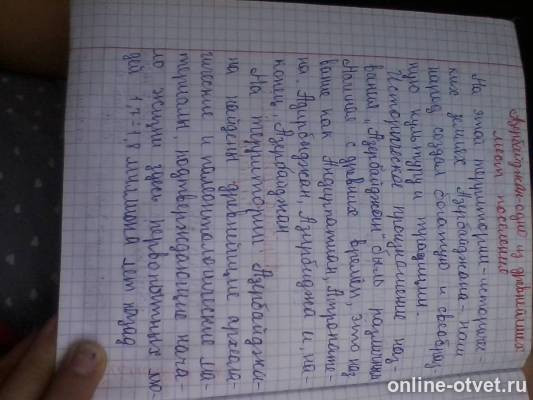 Азербайджан-одно из древнейших
мест поселения
На этой территории-историчес-
ких землях Азербайджана-наш
народ создал богатую и своеобраз-
ную культуру и традиции.
Историческое происхождение наз-
вания „Азербайджан" были различны
Начиная с древних времён, это наз
вание как Андирпатиан, Атропате-
на, Азирбиджан, Азирбиджа и на-
конец, Азербайджан
На территории Азербайджа-
на найдены древнейшие архело-
гические и палеонталогические ма-
териалы подтверждающие нача-
ло жизни здесь первобытных лю-
дей 1,7-1,8 миллиона лет назад
online-otvet.ru